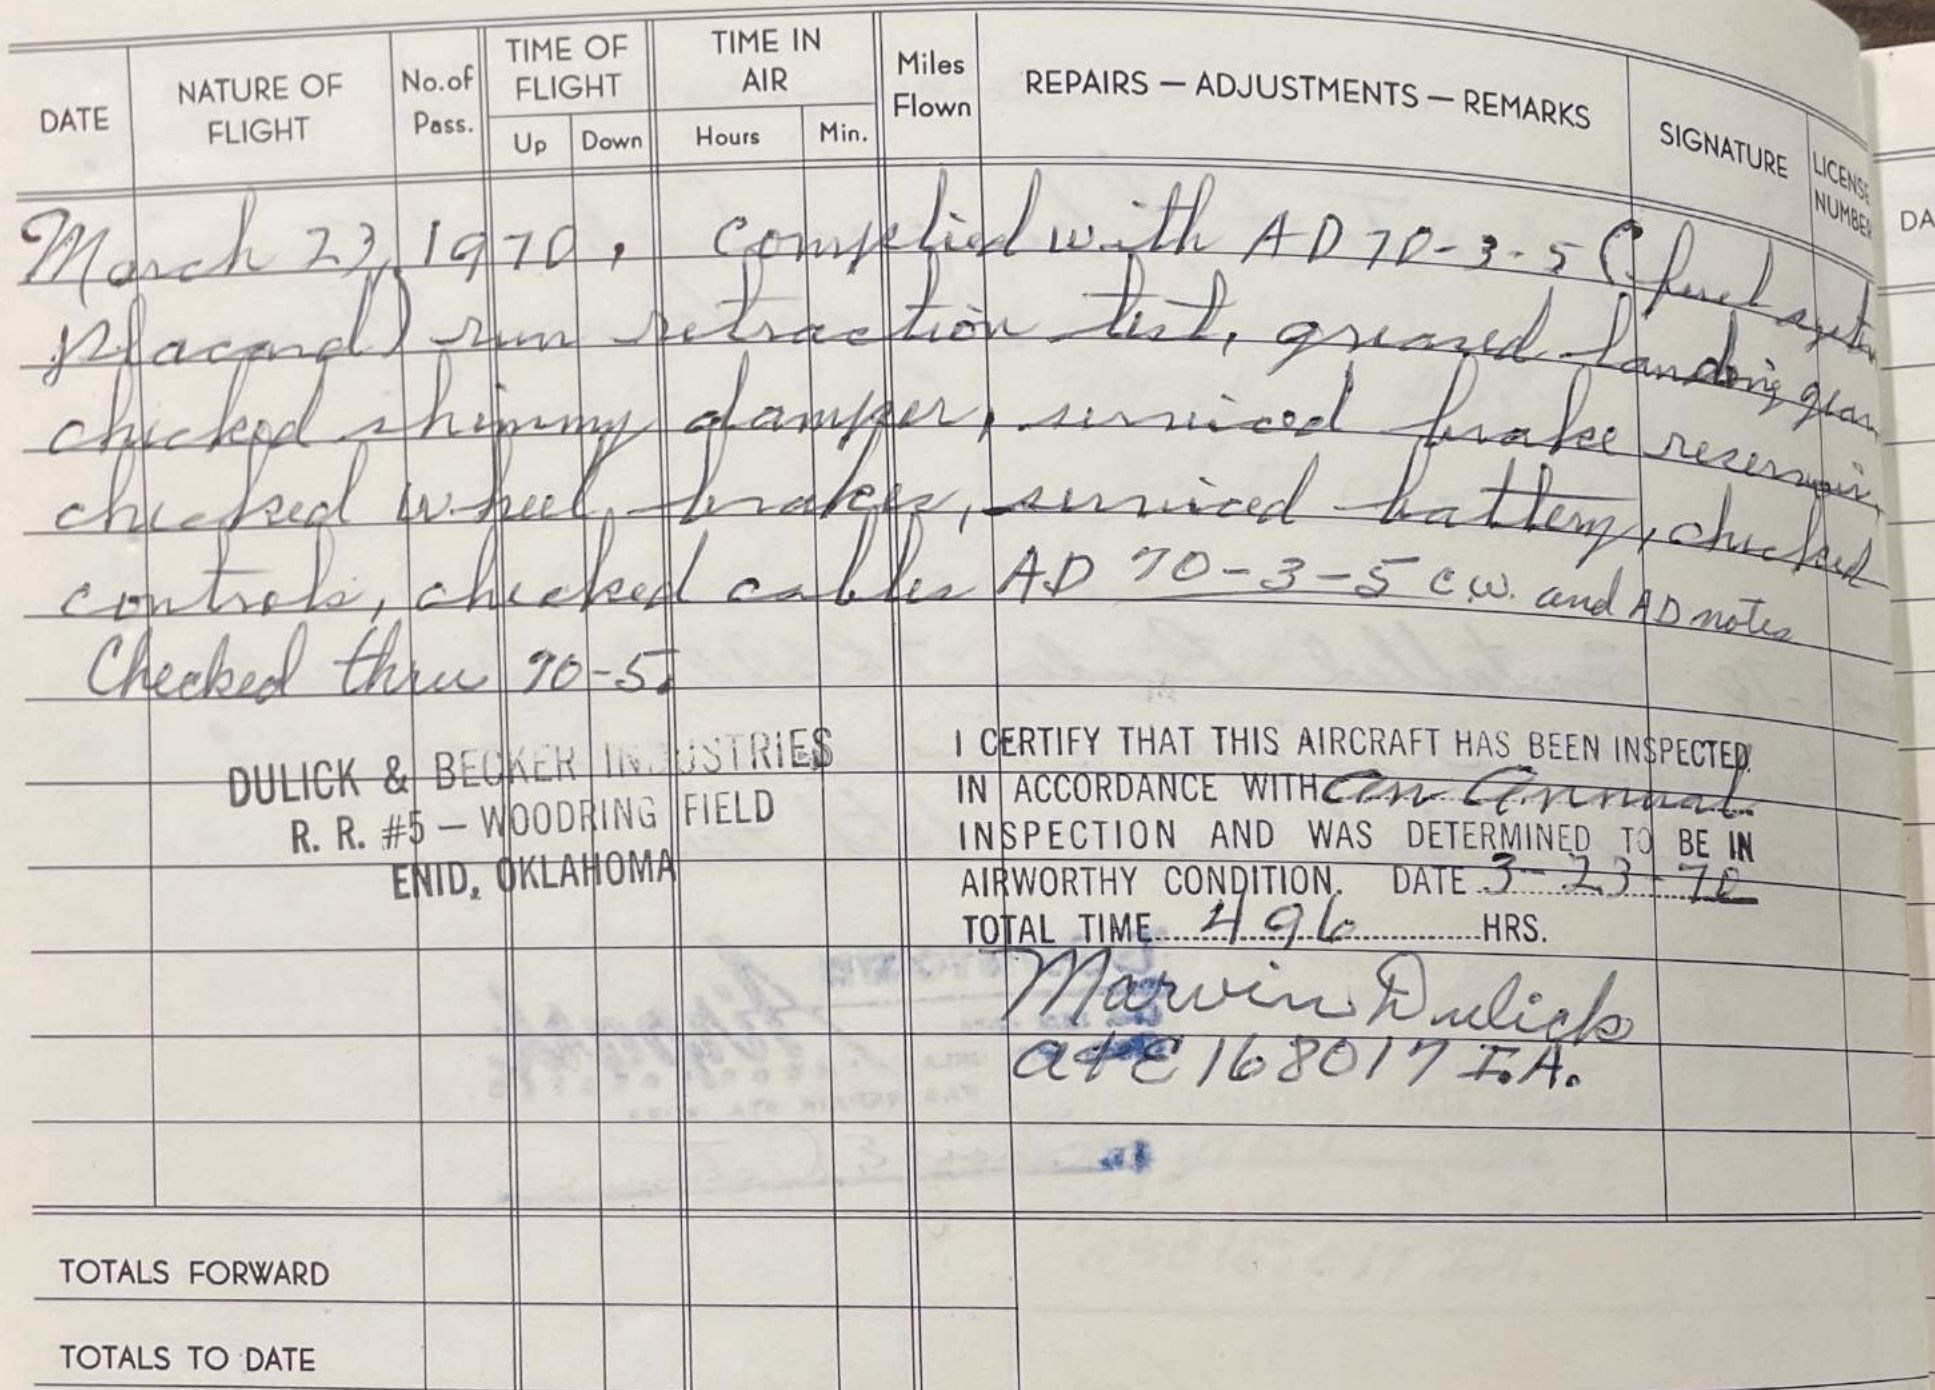 DATE
NATURE OF FLIGHT
No. of Pass.
TIME OF FLIGHT
Up Down
TIME IN AIR
Hours Min.
Miles Flown
REPAIRS — ADJUSTMENTS — REMARKS
SIGNATURE
LICENSE NUMBER
DA
March 23, 1970, complied with AD 70-3-5 (fuel system
placard) run retraction test, greased landing gear
checked shimmy damper, serviced brake reservoir,
checked wheel, brakes, serviced battery, checked
controls, checked cables AD 70-3-5 c.w. and AD notes
Checked thru 70-5.
DULICK & BECKER INDUSTRIES
R. R. #5 — WOODRING FIELD
ENID, OKLAHOMA
I CERTIFY THAT THIS AIRCRAFT HAS BEEN INSPECTED
IN ACCORDANCE WITH an Annual
INSPECTION AND WAS DETERMINED TO BE IN
AIRWORTHY CONDITION. DATE 3-23-70
TOTAL TIME 496 HRS.
Marvin Dulick
a+E 168017 I.A.
TOTALS FORWARD
TOTALS TO DATE